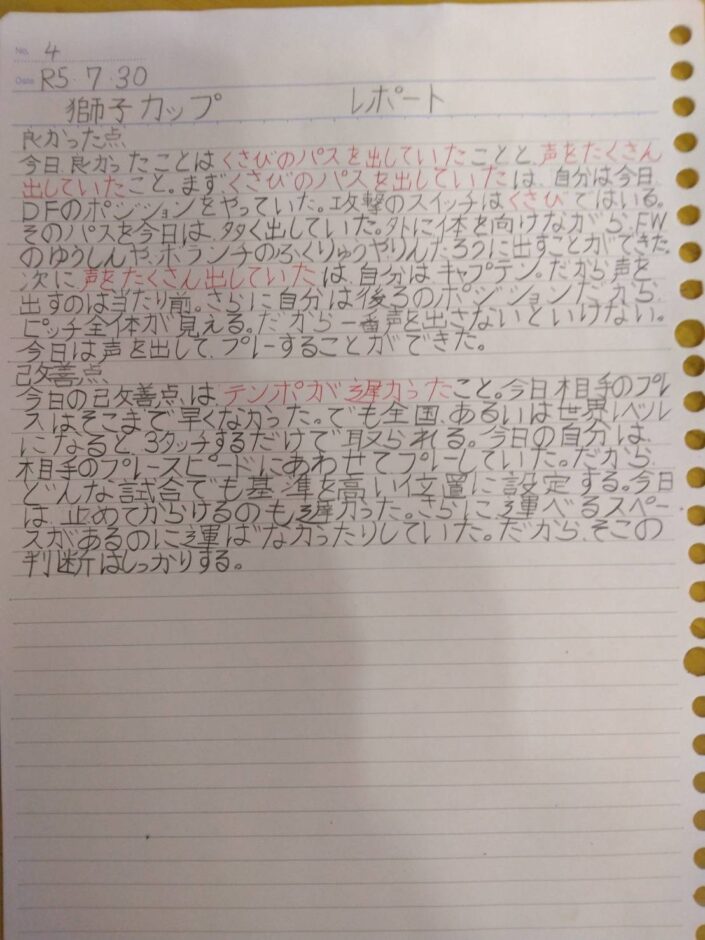 No. 4
Date R5・7・30
獅子カップ　レポート
良かった点
今日、良かったことはくさびのパスを出していたことと、声をたくさん
出していたこと。まずくさびのパスを出していたは、自分は今日、
DFのポジションをやっていた。攻撃のスイッチはくさびではいる。
そのパスを今日は、多く出していた。外に体を向けながら、FW
のゆうしんや、ボランチのふくりゅうやりんたろうに出すことができた。
次に声をたくさん出していたは、自分はキャプテン。だから声を
出すのは当たり前。さらに自分は後ろのポジションだから、
ピッチ全体が見える。だから一番声を出さないといけない。
今日は声を出して、プレーすることができた。
改善点、
今日の改善点は、テンポが遅かったこと。今日、相手のプレ
スはそこまで早くなかった。でも全国、あるいは世界レベル
になると、3タッチするだけで取られる。今日の自分は、
相手のプレースピードにあわせてプレーしていた。だから、
どんな試合でも基準を高い位置に設定する。今日
は、止めてからけるのも遅かった。さらに運べるスペー
スがあるのに運ばなかったりしていた。だから、そこの
判断はしっかりする。